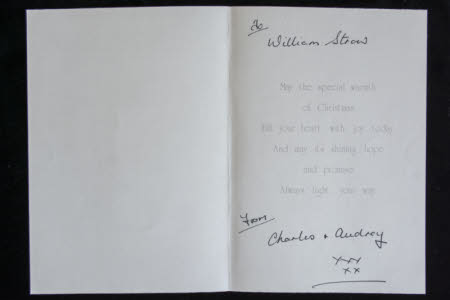 To
William Straw
May the special warmth
of Christmas
Fill your heart with joy today
And may its shining hope
and promise
Always light your way
From
Charles + Audrey
xxx
xx